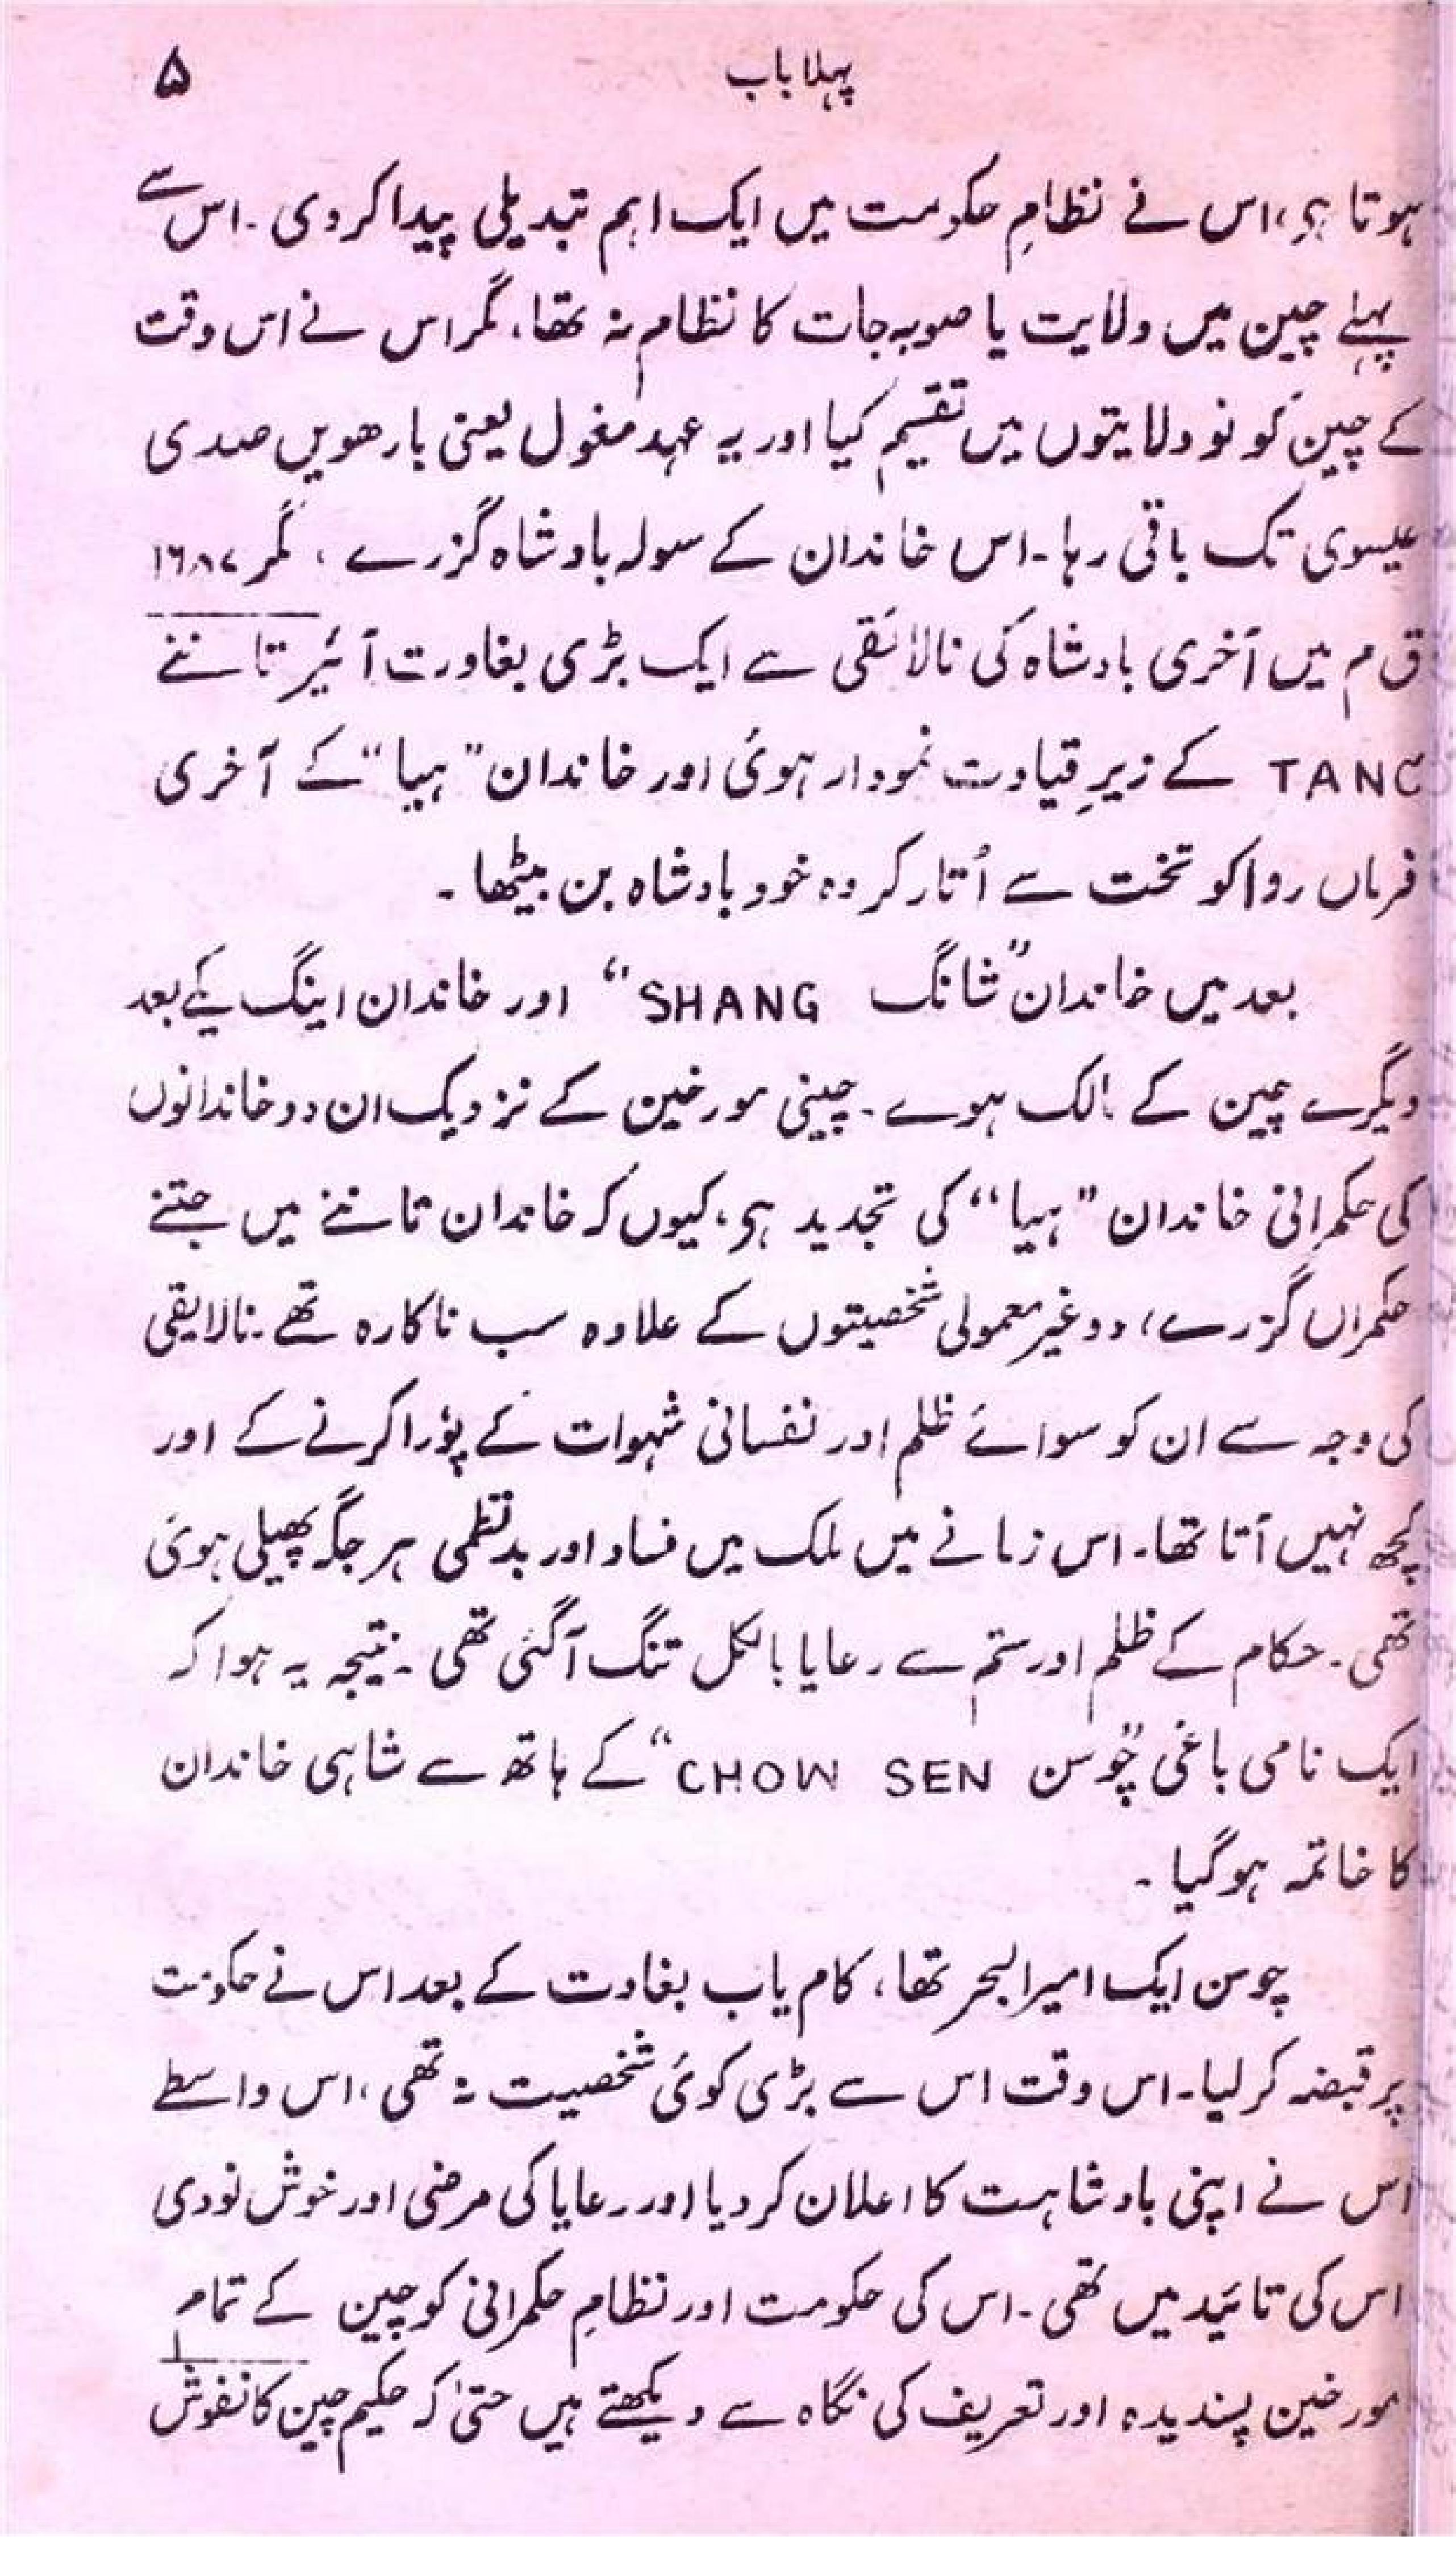 پہلا باب ۵
ہوتا ہی، اس نے نظامِ حکومت میں ایک اہم تبدیلی پیدا کر دی ۔ اس سے
پہلے چین میں ولایت یا صوبہ جات کا نظام نہ تھا، مگر اس نے اس وقت
کے چین کو نو ولایتوں میں تقسیم کیا اور یہ عہد مغول یعنی بارھویں صدی
عیسوی تک باقی رہا ۔ اس خاندان کے سولہ بادشاہ گزرے ، مگر ۱۶۸۷
ق م میں آخری بادشاہ کی نالائقی سے ایک بڑی بغاوت آئیر تاننے
TANC کے زیرِ قیادت نمودار ہوئی اور خاندان "ہیا" کے آخری
فرماں روا کو تخت سے اُتار کر وہ خود بادشاہ بن بیٹھا ۔
بعد میں خاندان "شانگ SHANG" اور خاندان اینگ یکے بعد
دیگرے چین کے مالک ہوے ۔ چینی مورخین کے نزدیک ان دو خاندانوں
کی حکمرانی خاندان "ہیا" کی تجدید ہی، کیوں کہ خاندان تاننے میں جتنے
حکمراں گزرے، دو غیر معمولی شخصیتوں کے علاوہ سب ناکارہ تھے ۔ نالایقی
کی وجہ سے ان کو سوائے ظلم اور نفسانی شہوات کے پؤرا کرنے کے اور
کچھ نہیں آتا تھا ۔ اس زمانے میں ملک میں فساد اور بدنظمی ہر جگہ پھیلی ہوئی
تھی ۔ حکام کے ظلم اور ستم سے رعایا بالکل تنگ آگئی تھی ۔ نتیجہ یہ ہوا کہ
ایک نامی باغی "چؤسن CHOW SEN" کے ہاتھ سے شاہی خاندان
کا خاتمہ ہوگیا ۔
چوسن ایک امیرالبحر تھا، کام یاب بغاوت کے بعد اس نے حکومت
پر قبضہ کر لیا ۔ اس وقت اس سے بڑی کوئی شخصیت نہ تھی، اس واسطے
اس نے اپنی بادشاہت کا اعلان کر دیا اور رعایا کی مرضی اور خوش نودی
اس کی تائید میں تھی ۔ اس کی حکومت اور نظامِ حکمرانی کو چین کے تمام
مورخین پسندیدہ اور تعریف کی نگاہ سے دیکھتے ہیں حتیٰ کہ حکیم چین کانفوش